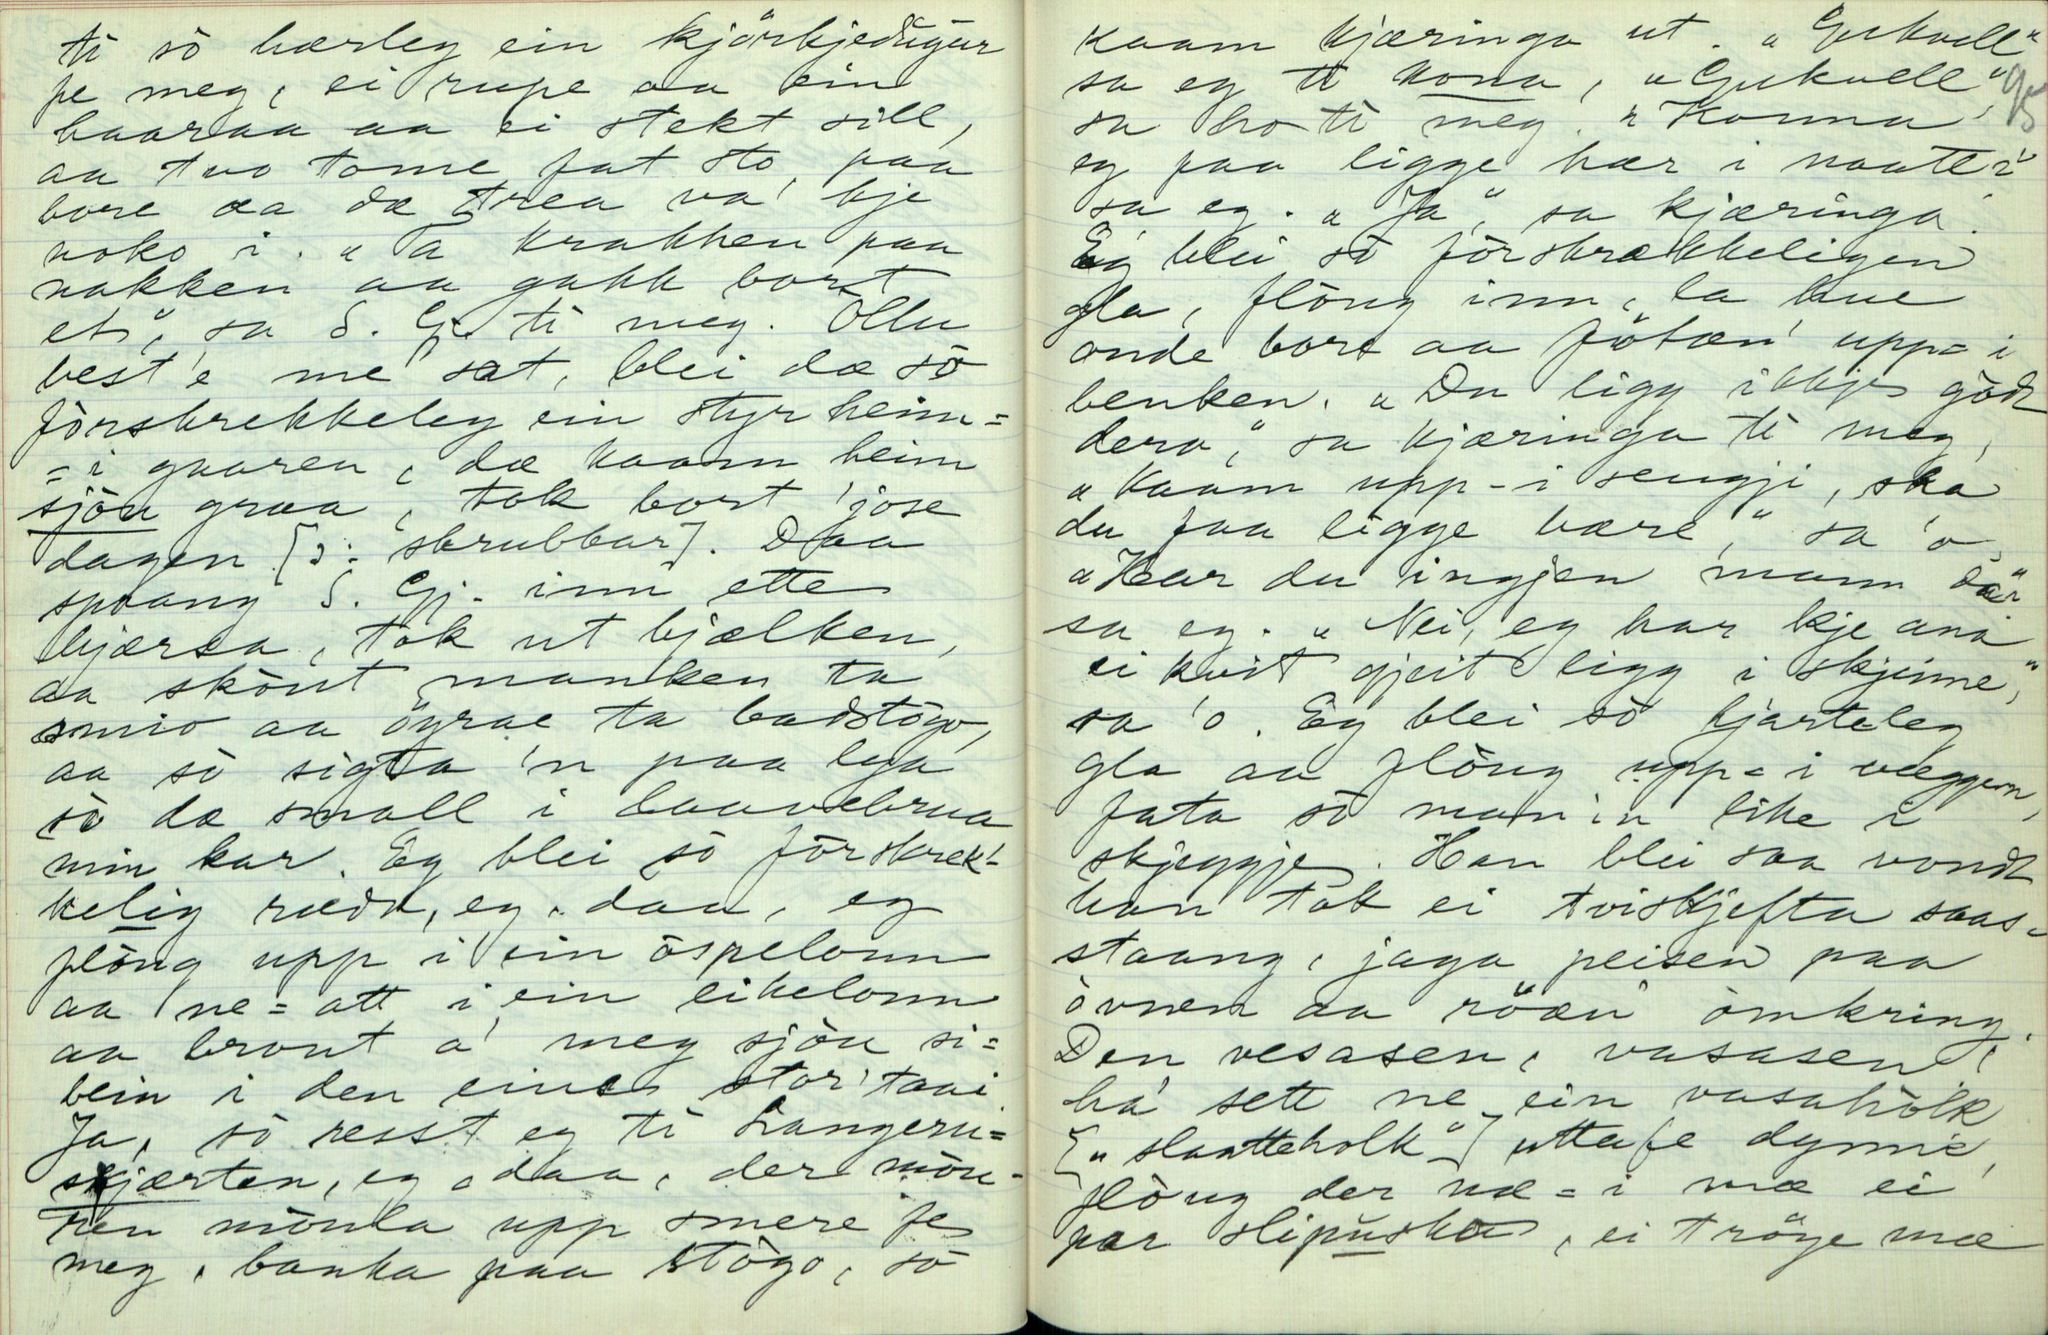 ti sò hærleg ein kjörkjedugur
fe meg, ei rupe aa ein
baaraa aa ei stekt sill,
aa tvo tome fat sto, paa
bore aa dæ trea va' kje
noko i. „Ta krakken paa
nakken aa gakk bort
et", sa S. Gj. ti meg. Ollu
best'e me sat, blei dæ sò
förskrekkeleg ein styr heim=
=i gaaren, dæ kaam heim
sjòu graa, tok bort 'jose
dagen [ɔ: skrubbar]. Daa
spraang S. Gj. inn ette
kjærra, tok ut kjælken,
aa skòut manken ta
smio aa öyrae ta badstògo,
aa sò sigta 'n paa lya
sò dæ small i laavebrua
min kar. Eg blei sò förskrek-
kelig rædd, eg, daa, eg
flòug upp i ein òspelonn
aa ne=att i ein eikelonn
aa brout a' meg sjòu si=
bein i den eine stor'taai.
Ja, sò resst eg ti Langeru=
skjærten, eg, daa, der mòu-
ren mònla upp smere fe
meg, banka paa stògo, sò
kaam kjæringa ut. „Gukvell"
sa eg ti kona, „Gukvell",
sa ho ti meg. „Konna
eg faa ligge hær i naatt?"
sa eg. „Ja", sa kjæringa.
Eg blei sò förskrækkeligen
gla, flòug inn, la hue
onde bore aa fötæn' upp=i
benken. „Du ligg ikkje gòdt
dera", sa kjæringa ti meg,
„kaam upp-i sengji, ska
du faa ligge bære," sa 'o.
„Har du ingjen mann da"
sa eg. „Nei, eg har kje ana
ei kvit gjeit ligg i skjinne,"
sa 'o. Eg blei sò hjarteleg
gla aa flòug upp=i væggen,
fata sò mann'n like i
skjeggje. Han blei saa vondt
han tok ei tviskjefta saas-
staang, jaga peisen paa
òvnen aa röæn omkring.
Den vesasen, vasasen,
ha' sett ne ein vasahòlk
[„slaatteholk"] utta fe dynnie,
flòug der næ=i mæ ei
par slipuska, ei tröye mæ
95